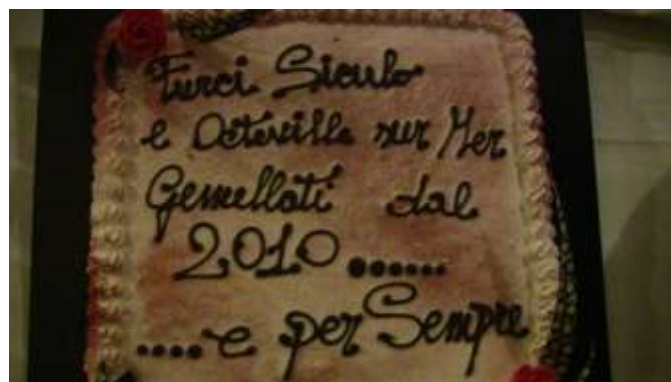 Furci Siculo
e Octeville sur Mer
Gemellati dal
2010......
....e per Sempre